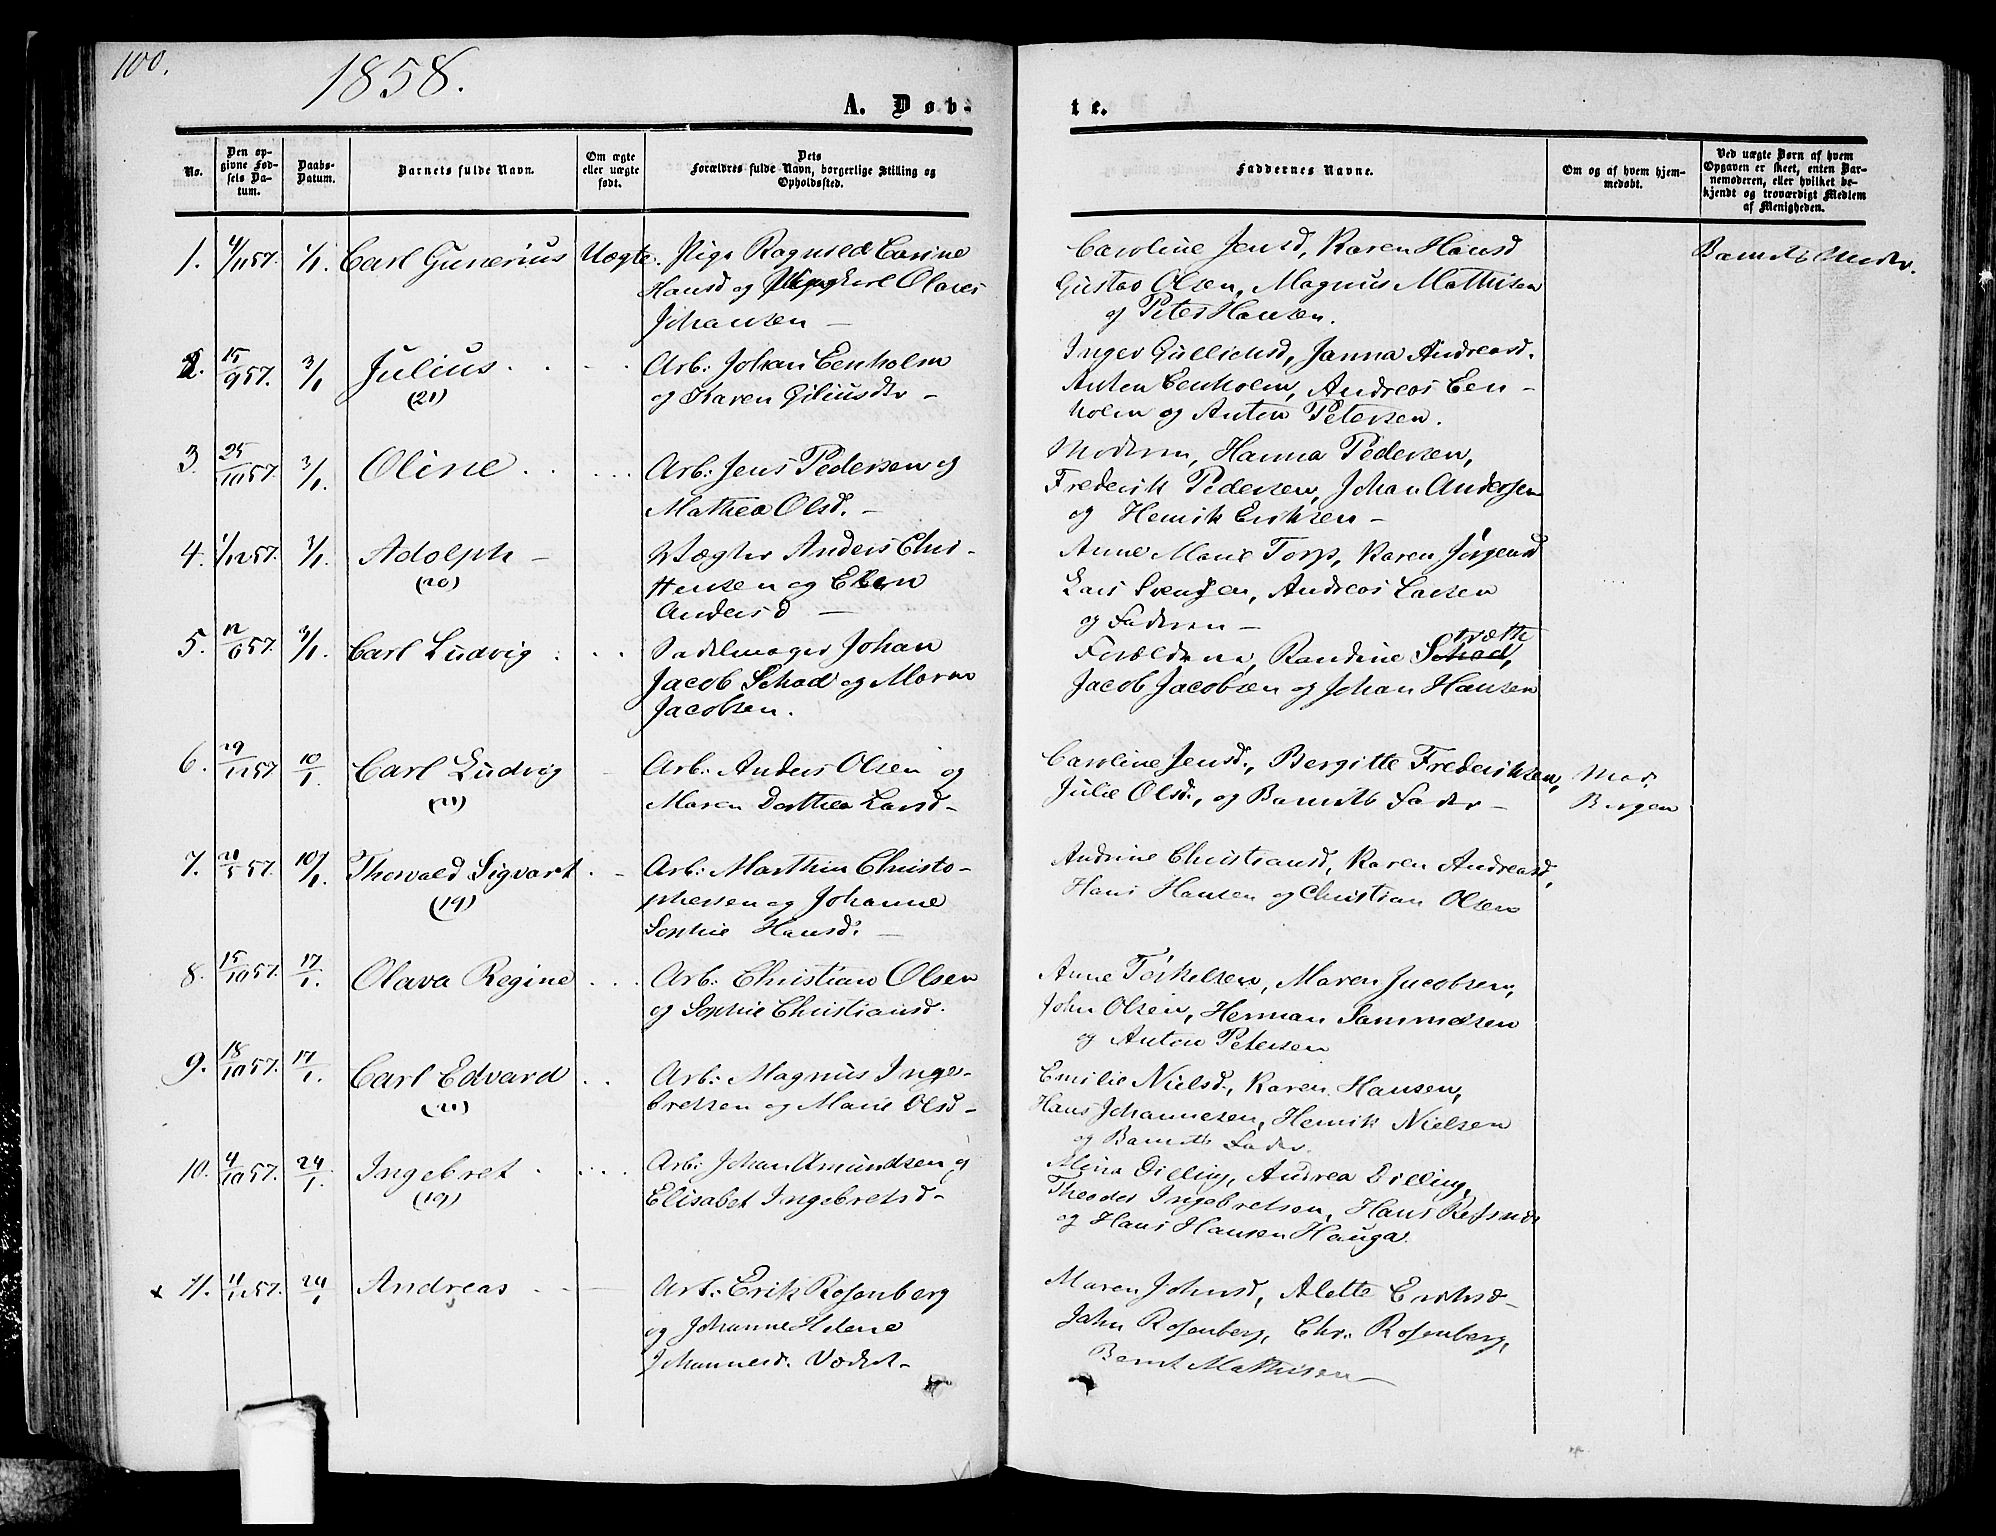 100.
1858.
A. Døb-
te.
No.
Den op-
givne Fød-
sels Da-
tum.
Daabs-
Datum.
Barnets fulde Navn.
Om ægte
eller uægte
født.
Dets
Forældres fulde Navn, borgerlige Stilling og
Opholdssted.
Faddernes Navne.
Om og af hvem hjem-
medøbt.
Ved uægte Børn af hvem
Opgaven er skeet, enten Bar-
nemoderen, eller hvilket be-
kjendt og troværdigt Medlem
af Menigheden.
1. 4/11 57. 1/1. Carl Gunerius Uægte. Pige Ragnild Carine
Hansd og Ungkarl Olaves
Johansen –
Caroline Jensd, Karen Hansd
Gustav Olsen, Magnus Mathisen
og Peter Hansen.
Barnets Moder.
2. 15/9 57. 3/1 Julius
(21)
Arb: Johan Eenholm
og Karen Giliusdtr –
Inger Gullichsd, Janna Andreasd.
Anton Eenholm, Andreas Een-
holm og Anton Petersen.
3. 25/10 57. 3/1. Oline
Arb: Jens Pedersen og
Mathea Olsd. –
Moderen, Hanna Pedersen,
Frederik Pedersen, Johan Andersen
og Henrik Eriksen –
4. 1/12 57. 3/1. Adolph –
(20)
Vægter Anders Chri-
stensen og Elen
Andersd –
Anne Marie Torp, Karen Jörgensd
Lars Svendsen, Andreas Larsen
og Faderen –
5. 12/6 57. 3/1. Carl Ludvig
Sadelmager Johan
Jacob Schad og Maren
Jacobsen.
Forældrene, Randine Schad,
Jacob Jacobsen og Johan Hansen
6. 29/11 57 10/1 Carl Ludvig
(21)
Arb: Anders Olsen og
Maren Dorthea Larsd –
Caroline Jensd., Bergitte Frederiksen,
Julie Olsd., og Barnets Fader –
Mad.
Bergen
7. 20/5 57. 10/1. Thorvald Sigvart
(19)
Arb: Marthin Christo-
phersen og Johanne
Sophie Hansd: –
Andrine Christiansd, Karen Andreasd,
Hans Hansen og Christian Olsen
8. 15/10 57. 17/1. Olava Regine
Arb: Christian Olsen
og Sophie Christiansd.
Anne Törkelsen, Maren Jacobsen,
John Olsen, Herman Sammelsen
og Anton Petersen
9. 18/10 57. 17/1. Carl Edvard
(21)
Arb: Magnus Inge-
bretsen og Marie Olsd –
Emilie Nielsd., Karen Hansen,
Hans Johannesen, Henrik Nielsen
og Barnets Fader.
10. 4/10 57. 24/1. Ingebret
(19)
Arb: Johan Amundsen og
Elisabet Ingebretsd –
Mina Dilling, Andrea Dilling,
Theodor Ingebretsen, Hans Refsnæs
og Hans Hansen Hauga.
x 11. 11/11 57. 24/1 Andreas
Arb: Erik Rosenberg
og Johanne Helene
Johannesd.
Maren Johnsd, Alette Eriksd –
John Rosenberg, Chr. Rosenberg,
Bernt Mathisen –